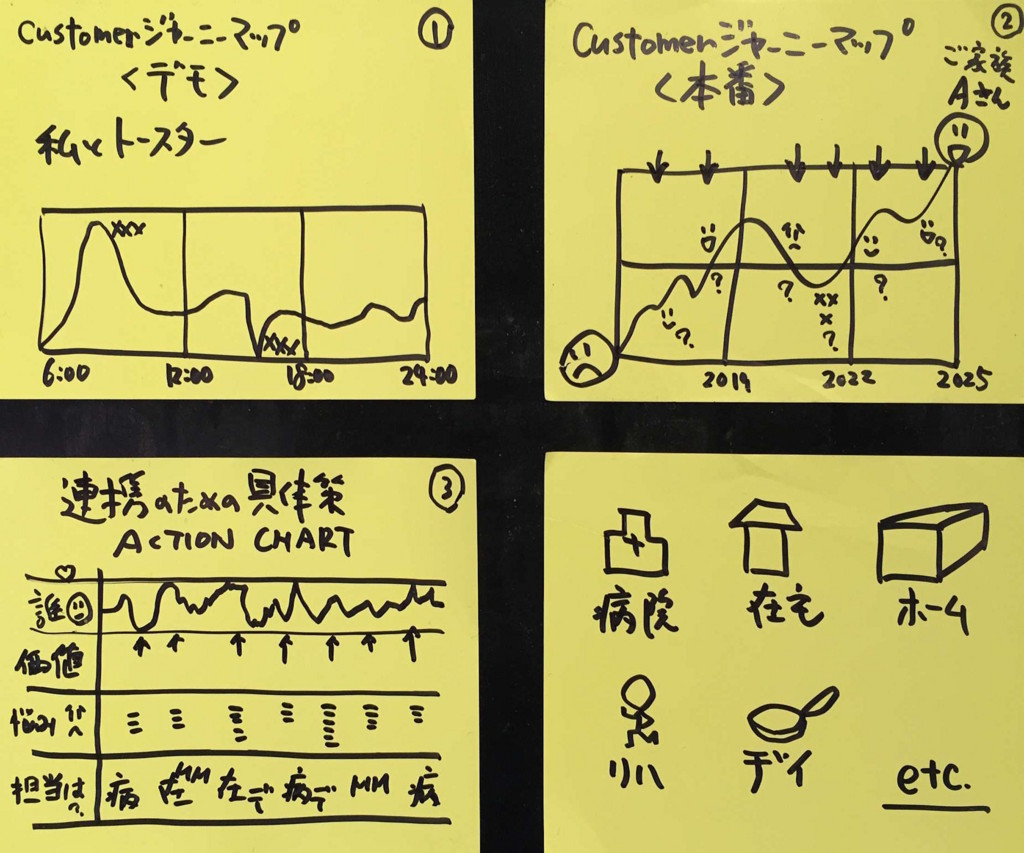 ①
Customerジャーニーマップ
<デモ>
私とトースター
xxx
xxx
6:00 12:00 18:00 24:00
②
Customerジャーニーマップ
<本番>
ご家族
Aさん
?
?
?
?
xx
x
?
?
2019 2022 2025
③
連携のための具体策
ACTION CHART
誰
価値
悩み
担当は?
病 在MM 在デ 病デ MM 病
病院 在宅 ホーム
リハ デイ etc.